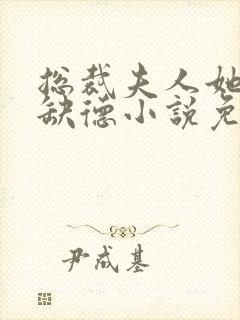 总裁夫人她
缺德小说免
尹成基